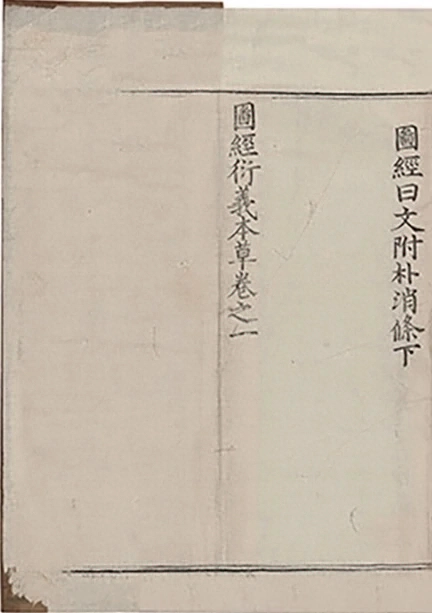 圖經曰文附朴消條下
圖經衍義本草卷之一